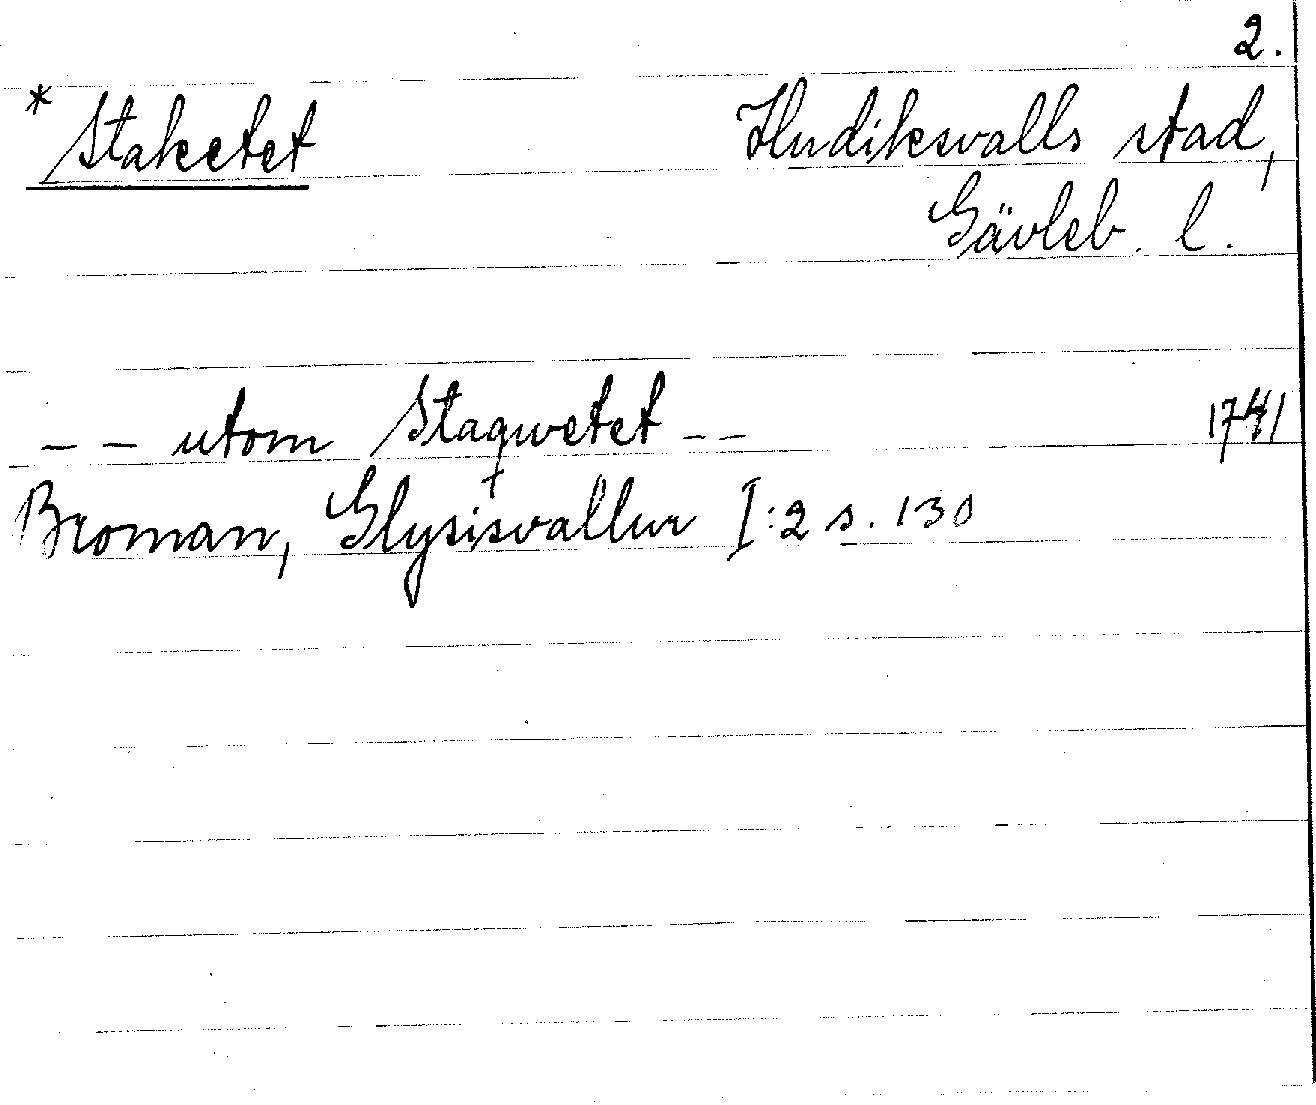 2.
* Staketet Hudiksvalls stad,
Gävleb. l.
– – utom Staqwetet – – 1741
Broman, Glysisvallur I:2 s. 130